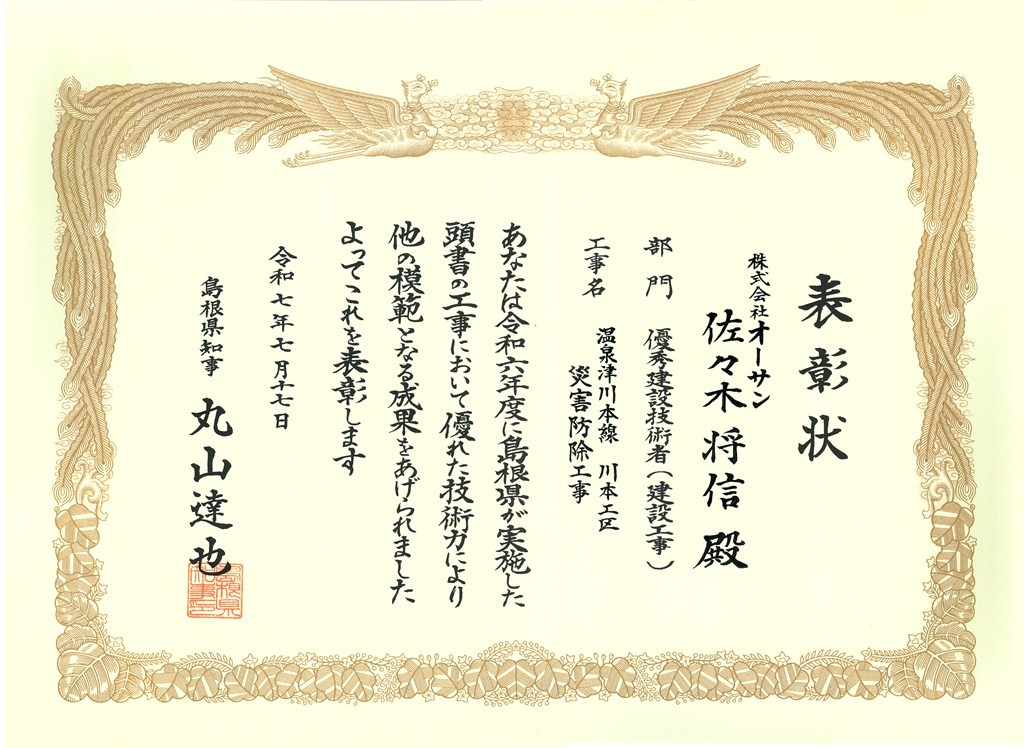 表彰状
株式会社オーサン
佐々木将信 殿
部門 優秀建設技術者(建設工事)
工事名 温泉津川本線 川本工区
災害防除工事
あなたは令和六年度に島根県が実施した
頭書の工事において優れた技術力により
他の模範となる成果をあげられました
よってこれを表彰します
令和七年七月十七日
島根県知事 丸山達也
島根県知事之印